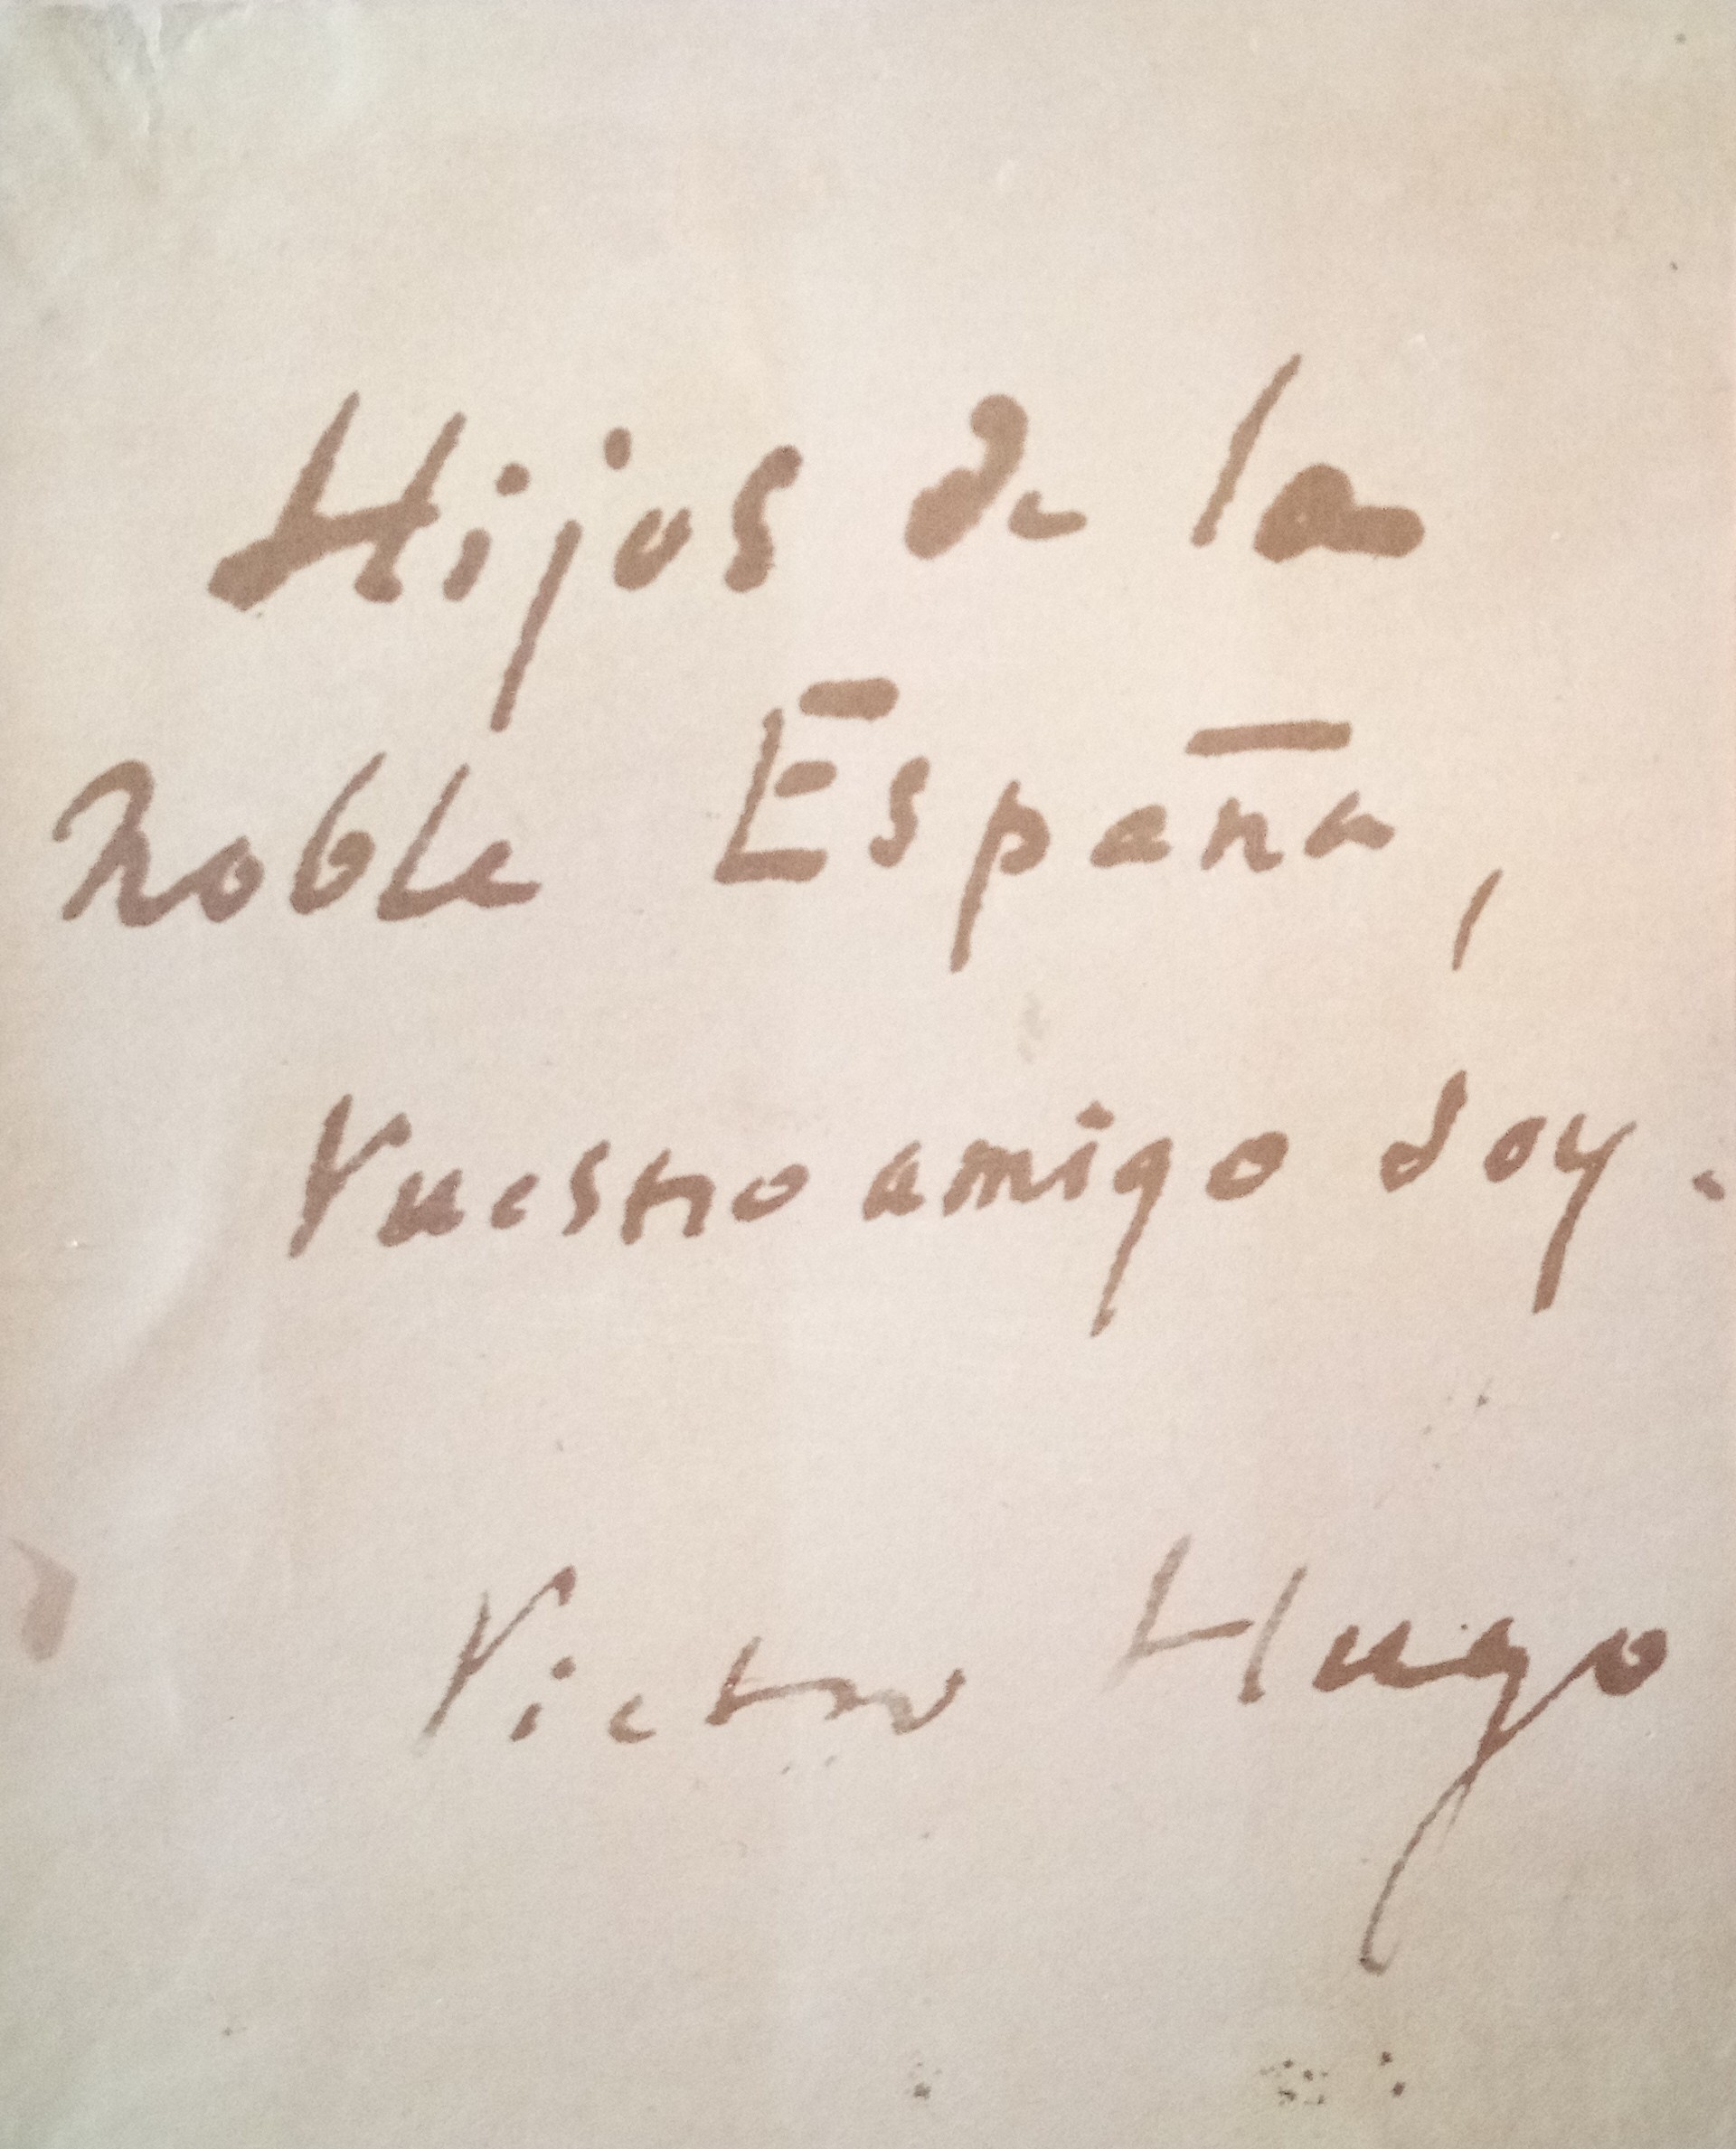 Hijos de la
noble España,
Vuestro amigo soy.
Victor Hugo